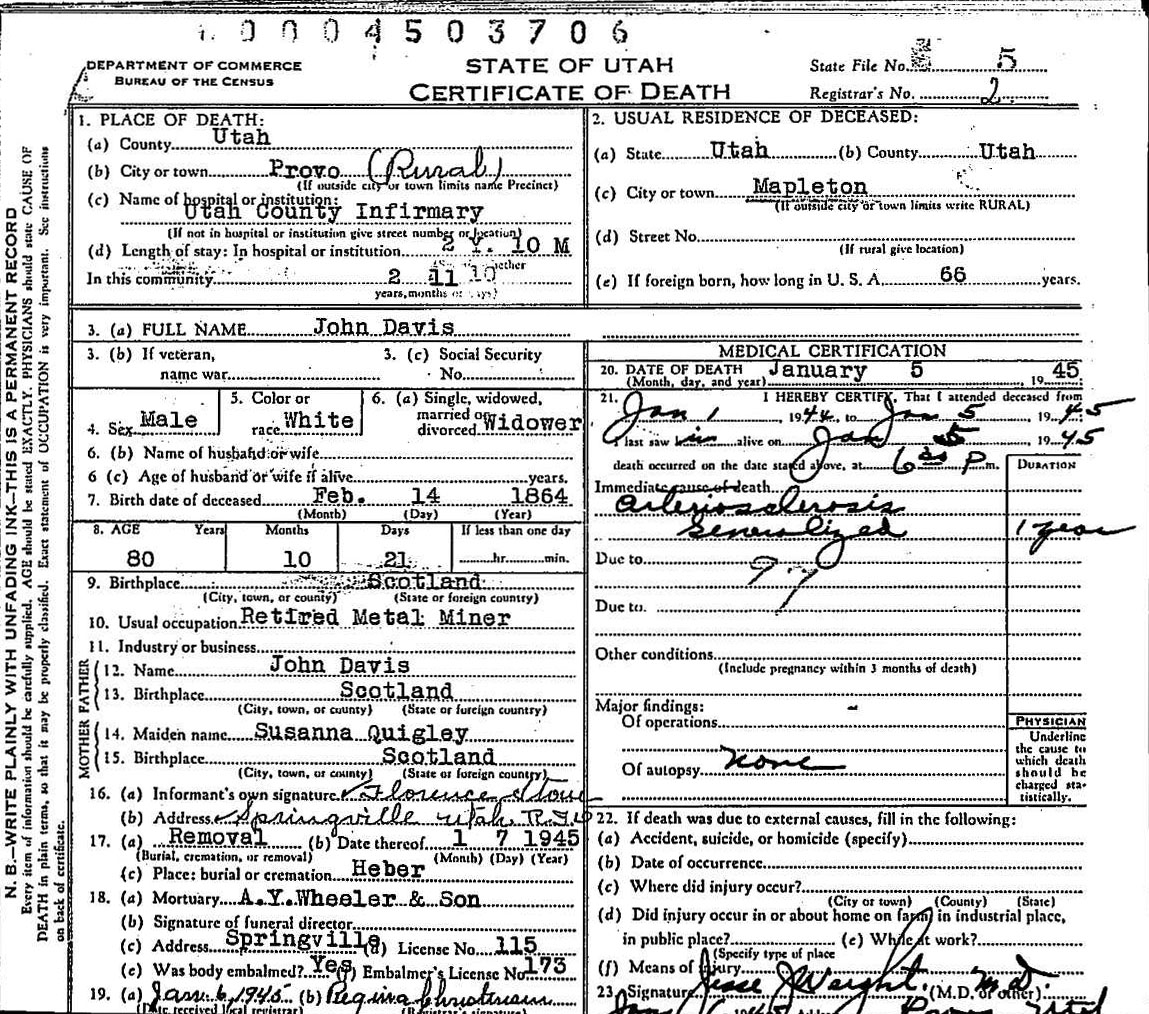 1 0 0 0 4 5 0 3 7 0 6
DEPARTMENT OF COMMERCE
BUREAU OF THE CENSUS
STATE OF UTAH
CERTIFICATE OF DEATH
State File No. 5
Registrar's No. 2
N. B.—WRITE PLAINLY WITH UNFADING INK—THIS IS A PERMANENT RECORD
Every item of information should be carefully supplied. AGE should be stated EXACTLY. PHYSICIANS should state CAUSE OF
DEATH in plain terms, so that it may be properly classified. Exact statement of OCCUPATION is very important. See instructions
on back of certificate.
1. PLACE OF DEATH:
(a) County Utah
(b) City or town Provo (Rural)
(If outside city or town limits name Precinct)
(c) Name of hospital or institution:
Utah County Infirmary
(If not in hospital or institution give street number or location)
(d) Length of stay: In hospital or institution 2 Y. 10 M
whether
In this community 2 11 10
years, months or days)
2. USUAL RESIDENCE OF DECEASED:
(a) State Utah (b) County Utah
(c) City or town Mapleton
(If outside city or town limits write RURAL)
(d) Street No.
(If rural give location)
(e) If foreign born, how long in U. S. A. 66 years.
3. (a) FULL NAME John Davis
3. (b) If veteran,
name war
3. (c) Social Security
No.
4. Sex Male
5. Color or
race White
6. (a) Single, widowed,
married or
divorced Widower
6. (b) Name of husband or wife
6 (c) Age of husband or wife if alive years.
7. Birth date of deceased Feb. 14 1864
(Month) (Day) (Year)
8. AGE Years Months Days If less than one day
80 10 21 hr. min.
9. Birthplace Scotland
(City, town, or county) (State or foreign country)
10. Usual occupation Retired Metal Miner
11. Industry or business
FATHER
12. Name John Davis
13. Birthplace Scotland
(City, town, or county) (State or foreign country)
MOTHER
14. Maiden name Susanna Quigley
15. Birthplace Scotland
(City, town, or county) (State or foreign country)
16. (a) Informant's own signature Florence
(b) Address Springville Utah.
17. (a) Removal (b) Date thereof 1 7 1945
(Burial, cremation, or removal) (Month) (Day) (Year)
(c) Place: burial or cremation Heber
18. (a) Mortuary A.Y. Wheeler & Son
(b) Signature of funeral director
(c) Address Springville (d) License No. 115
(e) Was body embalmed? Yes (f) Embalmer's License No 173
19. (a) Jan. 6, 1945 (b) Regina
(Date received local registrar) (Registrar's signature)
MEDICAL CERTIFICATION
20. DATE OF DEATH January 5 , 19 45
(Month, day, and year)
21. I HEREBY CERTIFY, That I attended deceased from
Jan 1 , 19 44 to Jan 5 19 45
I last saw him alive on Jan 5 19 45
death occurred on the date stated above, at 6 P. m.
DURATION
Immediate cause of death
Arteriosclerosis
Generalized 1 year
Due to 97
Due to.
Other conditions
(Include pregnancy within 3 months of death)
Major findings:
Of operations
Of autopsy none
PHYSICIAN
Underline
the cause to
which death
should be
charged sta-
tistically.
22. If death was due to external causes, fill in the following:
(a) Accident, suicide, or homicide (specify)
(b) Date of occurrence
(c) Where did injury occur?
(City or town) (County) (State)
(d) Did injury occur in or about home on farm, in industrial place,
in public place? (e) While at work?
(Specify type of place
(f) Means of injury
23. Signature Jesse J Weight. m.d. (M.D. or other)